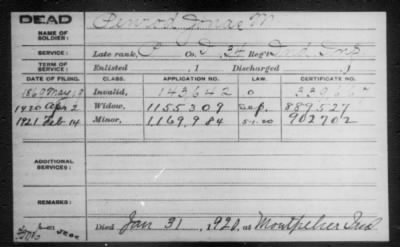 DEAD
NAME OF SOLDIER: Penrod Jonas M
SERVICE: Late rank, Co. 34 Reg't Ind. Inf
TERM OF SERVICE: Enlisted , 1 Discharged , 1
DATE OF FILING. CLASS. APPLICATION NO. LAW. CERTIFICATE NO.
Invalid, 143,642
1920 Apr 2 Widow, 1155309 889527
1921 Feb 14 Minor, 1,169,984 902702
ADDITIONAL SERVICES:
REMARKS:
Died Jan 31, 1920, at Montpelier Ind